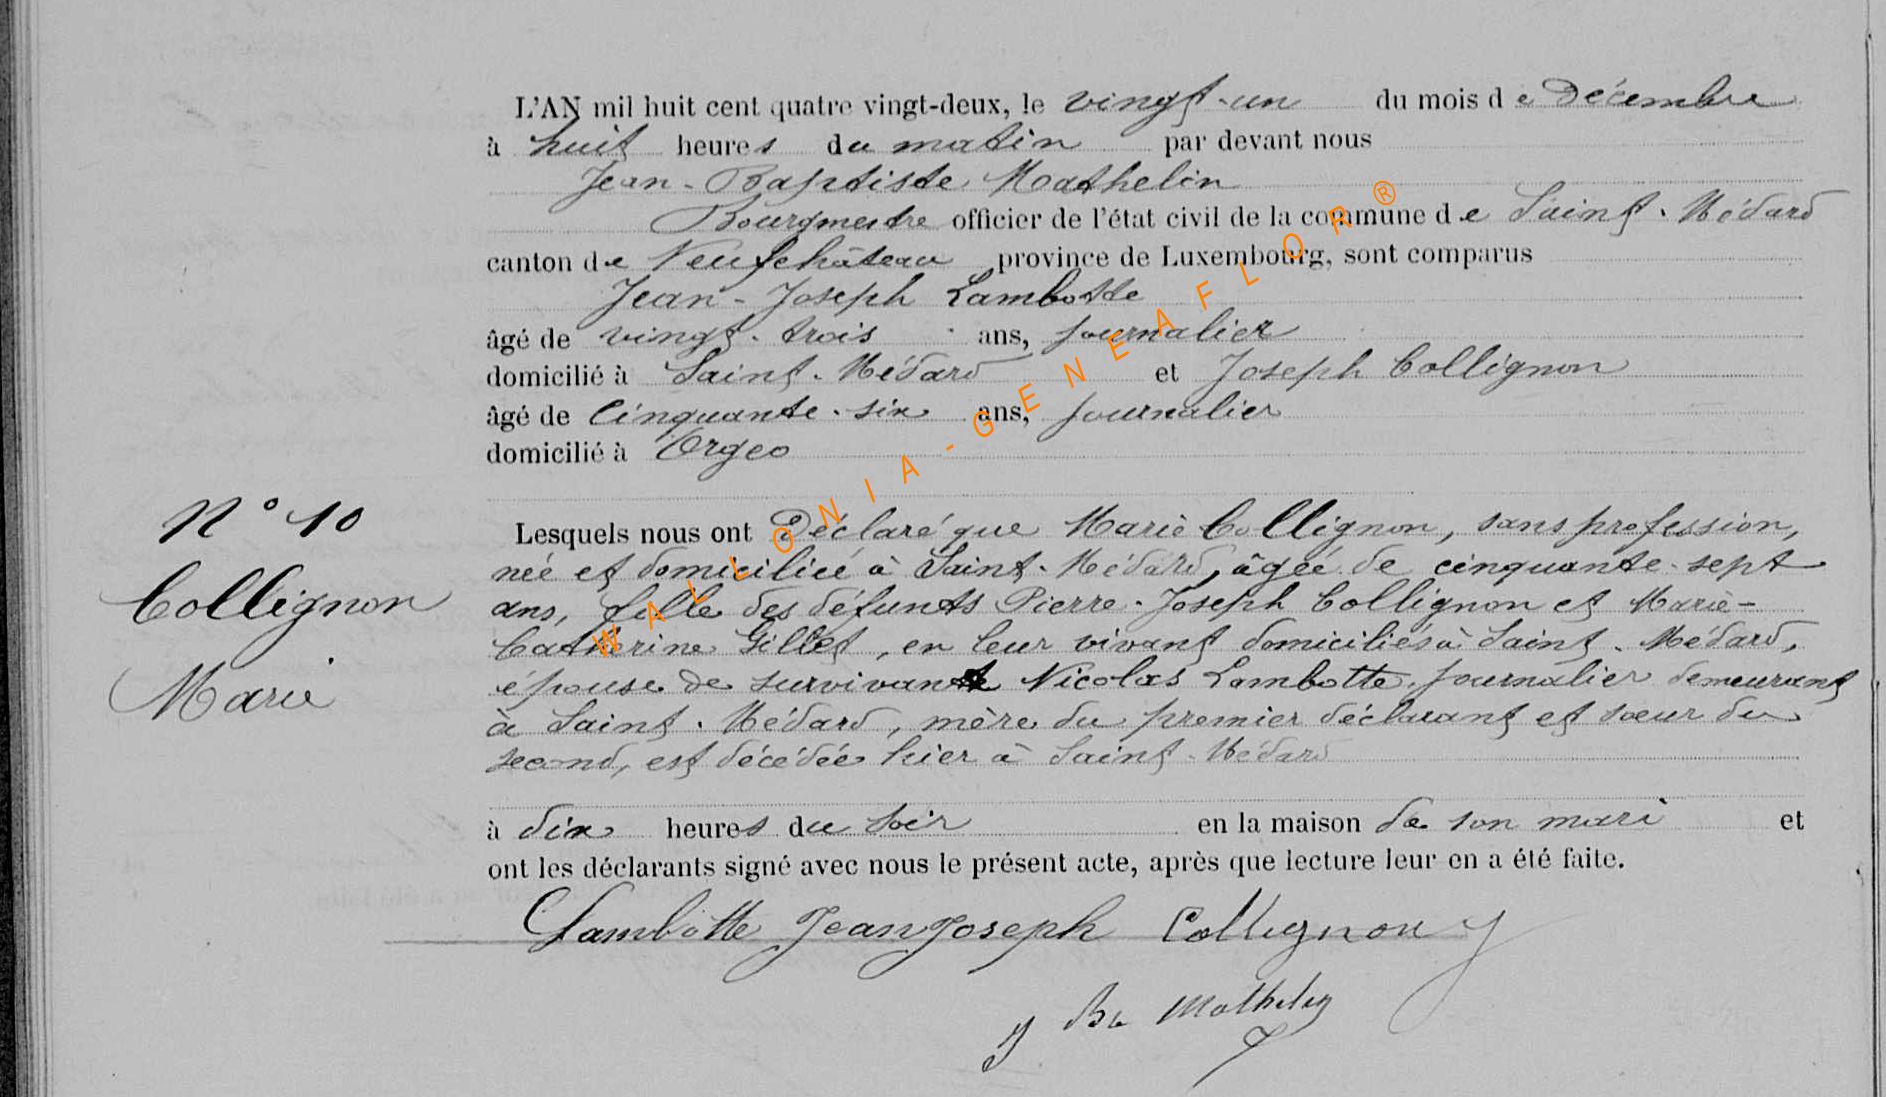 L'AN mil huit cent quatre vingt-deux, le vingt-un du mois de Décembre
à huit heures du matin par devant nous
Jean-Baptiste Mathelin
Bourgmestre officier de l'état civil de la commune de Saint-Médard
canton de Neufchâteau province de Luxembourg, sont comparus
Jean-Joseph Lambotte
âgé de vingt-trois ans, journalier
domicilié à Saint-Médard et Joseph Collignon
âgé de cinquante-six ans, journalier
domicilié à Orgeo
N° 10
Collignon
Marie
Lesquels nous ont Déclaré que Marie Collignon, sans profession,
née et domiciliée à Saint-Médard, âgée de cinquante-sept
ans, fille des défunts Pierre-Joseph Collignon et Marie-
Catherine Gillet, en leur vivant domiciliés à Saint-Médard,
épouse de survivant Nicolas Lambotte, journalier demeurant
à Saint-Médard, mère du premier déclarant et sœur du
second, est décédée hier à Saint-Médard
à dix heures du soir en la maison de son mari et
ont les déclarants signé avec nous le présent acte, après que lecture leur en a été faite.
Lambotte Jean Joseph Collignon J
J Bte Mathelin
WALLONIA-GENEAFLOR®